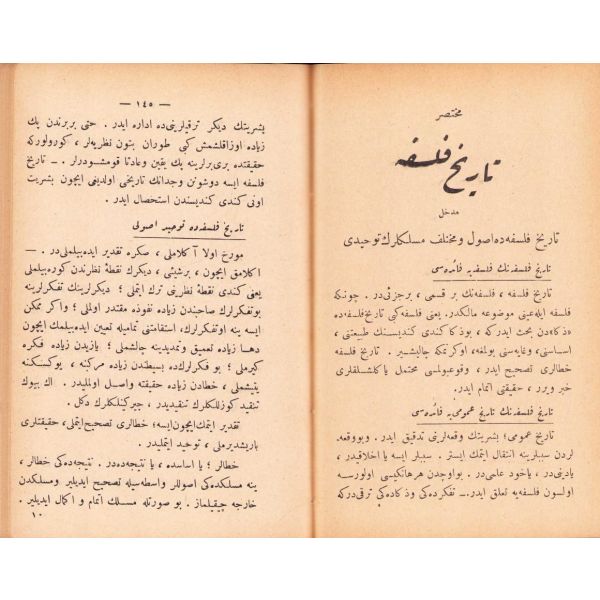 مختصر
تاريخ فلسفه
مدخل
تاريخ فلسفه ده اصول و مختلف مسلكلرك توحيدى
تاريخ فلسفه نك فلسفه يه فائده سى
تاريخ فلسفه ، فلسفه نك بر قسمى ، بر جزئى در . چونكه
فلسفه ايله عينى موضوعه مالكدر. يعنى فلسفه كبى تاريخ فلسفه ده
«ذكا» دن بحث ايدر كه ، بو ذكا كندى كنديسنك طبيعتنى ،
اساسنى ، وغايه سنى بولمغه ، اوكرنمكه چاليشير . تاريخ فلسفه
خطالرى تصحيح ايدر ، وقوعبولمسى محتمل ياكلشلقلرى
خبر ويرر ، حقيقتى اتمام ايدر.
تاريخ فلسفه نك تاريخ عمومى يه فائده سى
تاريخ عمومى؛ بشريتك وقعه لرينى تدقيق ايدر . وبووقعه .
لردن سببلرينه انتقال ايتمك ايستر . سببلر ايسه يا اخلاقيدر ،
يادينى در ، ياخود علمى در. بواوچدن هرهانكيسى اولورسه
اولسون فلسفه يه تعلق ايدر.ـ تفكرده كى وذكاده كى ترقى در كه
— ١٤٥ —
بشريتك ديكر ترقيلرينى ده اداره ايدر . حتى بربرندن پك
زياده اوزاقلشمش كبى طوران بتون نظريه لر ، كورولوركه
حقيقتده برى برلرينه پك يقين وعادتا قومشودرلر . ـ تاريخ
فلسفه ايسه دوشونن وجدانك تاريخى اولديغى ايچون بشريت
اونى كندى كنديسندن استحصال ايدر .
تاريخ فلسفه ده توحيد اصولى
مورخ اولا آكلاملى ، صكره تقدير ايده بيلملى در . —
اكلامق ايچون ، برشيئى ، ديكرك نقطۀ نظرندن كوره بيلملى
يعنى كندى نقطۀ نظرينى ترك ايتملى ؛ ديكرلرينك تفكرلرينه
بوتفكرلرك صاحبندن زياده نفوذه مقتدر اولملى ؛ واكر ممكن
ايسه ينه اوتفكرلرك، استقامتنى تماميله تعيين ايده بيلمك ايچون
دها زياده تعميق وتمديدينه چالشملى ؛ يازيدن زياده فكره
كيرملى ؛ بو فكرلرك ده بسيطندن زياده مركبنه ، يوكسكنه
يتيشملى ، خطادن زياده حقيقته واصل اولمليدر . اك بيوك
تنقيد كوزللكلرك تنقيديدر ، چيركينلكلرك دكل .
تقدير ايتمك ايچون ايسه؛ خطالرى تصحيح ايتملى، حقيقتلرى
باريشديرملى ، توحيد ايتمليدر .
خطالر ؛ يا اساسده ، يا نتيجه ده در . نتيجه ده كى خطالر ،
ينه مسلكده كى اصوللر واسطه سيله تصحيح ايديلير ومسلكدن
خارجه چيقيلماز . بو صورتله مسلك اتمام و اكمال ايديلير .
١٠